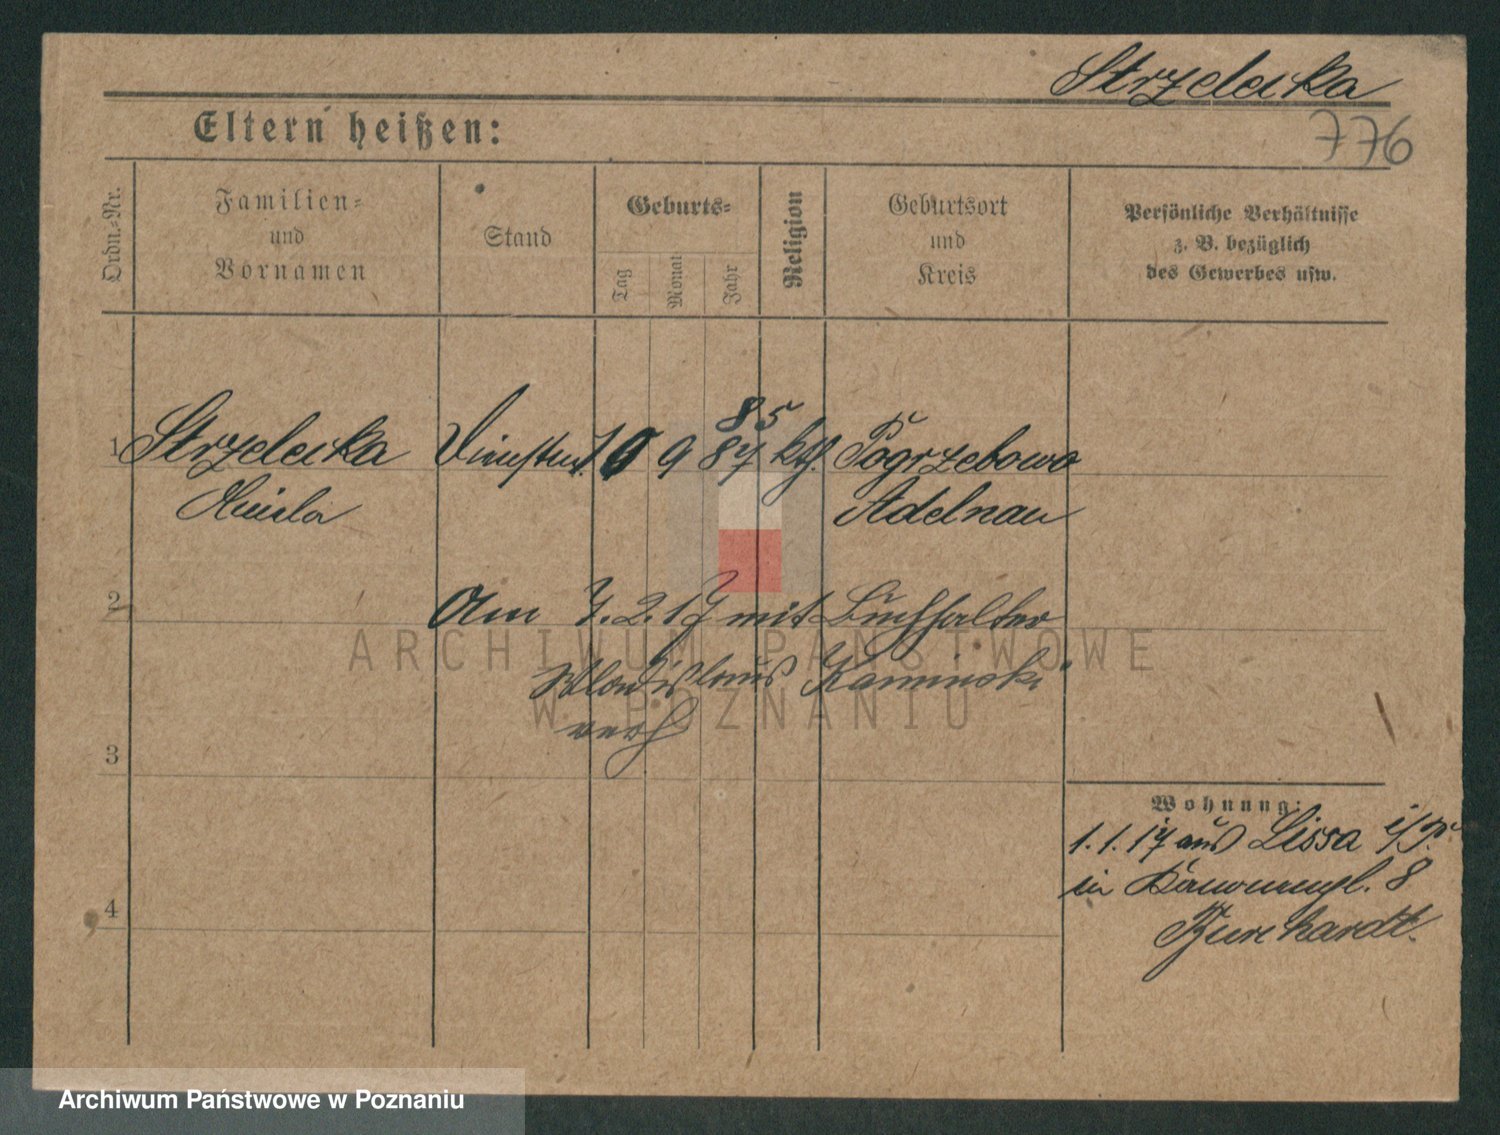 Strzelecka
776
Eltern heißen:
Ordn.-Nr.
Familien-
und
Vornamen
Stand
Geburts-
Tag
Monat
Jahr
Religion
Geburtsort
und
Kreis
Persönliche Verhältnisse
z. B. bezüglich
des Gewerbes usw.
85
1 Strzelecka 10 9 87 kth. Pogrzebowo
Adelnau
2 Am 7.2.17 mit Buchhalter
Wladislaus Kaminski
verh
3
Wohnung:
1.1.17 aus Lissa i/P.
in 8
4 Burchardt.
ARCHIWUM PAŃSTWOWE
W POZNANIU
Archiwum Państwowe w Poznaniu